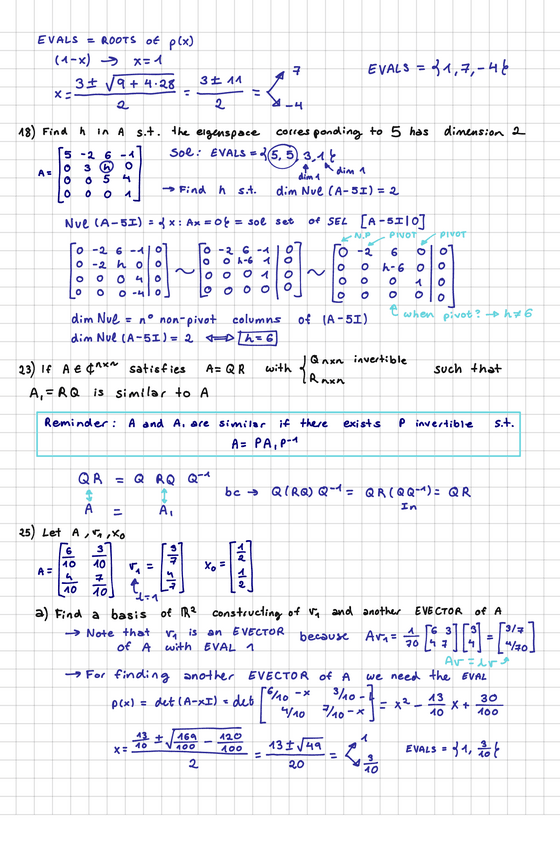 EVALS = ROOTS of p(x)
(1-x) → x=1
x = (3 ± √(9 + 4·28))/2 = (3 ± 11)/2 = 7, -4
EVALS = {1, 7, -4}
18) Find h in A s.t. the eigenspace corresponding to 5 has dimension 2
A = [5 -2 6 -1; 0 3 h 0; 0 0 5 4; 0 0 0 1]
Sol: EVALS = {5, 5, 3, 1}
dim 1 dim 1
→ Find h s.t. dim Nul (A-5I) = 2
Nul (A-5I) = {x: Ax=0} = sol set of SEL [A-5I|0]
N.P PIVOT PIVOT
[0 -2 6 -1 | 0; 0 -2 h 0 | 0; 0 0 0 4 | 0; 0 0 0 -4 | 0] ~ [0 -2 6 -1 | 0; 0 0 h-6 1 | 0; 0 0 0 1 | 0; 0 0 0 0 | 0] ~ [0 -2 6 0 | 0; 0 0 h-6 0 | 0; 0 0 0 1 | 0; 0 0 0 0 | 0]
when pivot? → h≠6
dim Nul = nº non-pivot columns of (A-5I)
dim Nul (A-5I) = 2 ⟺ h=6
23) If A ∈ ℂⁿˣⁿ satisfies A=QR with { Q nxn invertible
R nxn
such that
A₁ = RQ is similar to A
Reminder: A and A₁ are similar if there exists P invertible s.t.
A = PA₁P⁻¹
QR = Q RQ Q⁻¹
bc → Q(RQ)Q⁻¹ = QR(QQ⁻¹) = QR
In
A = A₁
25) Let A, v₁, x₀
A = [6/10 3/10; 4/10 7/10] v₁ = [3/7; 4/7] x₀ = [1/2; 1/2]
λ=1
a) Find a basis of ℝ² constructing of v₁ and another EVECTOR of A
→ Note that v₁ is an EVECTOR because Av₁ = 1/70 [6 3; 4 7] [3; 4] = [3/7; 4/70]
of A with EVAL 1
Av = λv
→ For finding another EVECTOR of A we need the EVAL
p(x) = det(A-xI) = det [6/10 -x 3/10; 4/10 7/10 -x] = x² - 13/10 x + 30/100
x = (13/10 ± √(169/100 - 120/100))/2 = (13 ± √49)/20 = 1, 3/10
EVALS = {1, 3/10}